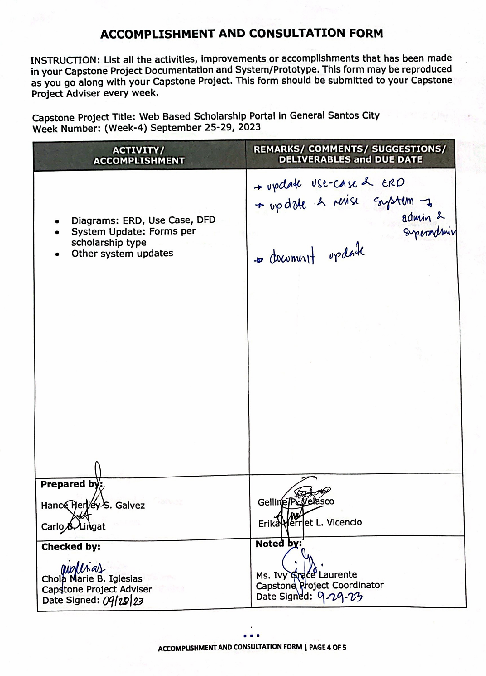 ACCOMPLISHMENT AND CONSULTATION FORM
INSTRUCTION: List all the activities, improvements or accomplishments that has been made
in your Capstone Project Documentation and System/Prototype. This form may be reproduced
as you go along with your Capstone Project. This form should be submitted to your Capstone
Project Adviser every week.
Capstone Project Title: Web Based Scholarship Portal in General Santos City
Week Number: (Week-4) September 25-29, 2023
ACTIVITY/
ACCOMPLISHMENT
REMARKS/ COMMENTS/ SUGGESTIONS/
DELIVERABLES and DUE DATE
• Diagrams: ERD, Use Case, DFD
• System Update: Forms per
scholarship type
• Other system updates
→ update use-case & ERD
→ update & revise system →
admin &
superadmin
→ document update
Prepared by:
Hance Herley S. Galvez
Carlo Lingat
Gelline P. Velasco
Erika Merriet L. Vicencio
Checked by:
Chola Marie B. Iglesias
Capstone Project Adviser
Date Signed: 09/28/23
Noted by:
Ms. Ivy Grace Laurente
Capstone Project Coordinator
Date Signed: 9-29-23
ACCOMPLISHMENT AND CONSULTATION FORM | PAGE 4 OF 5